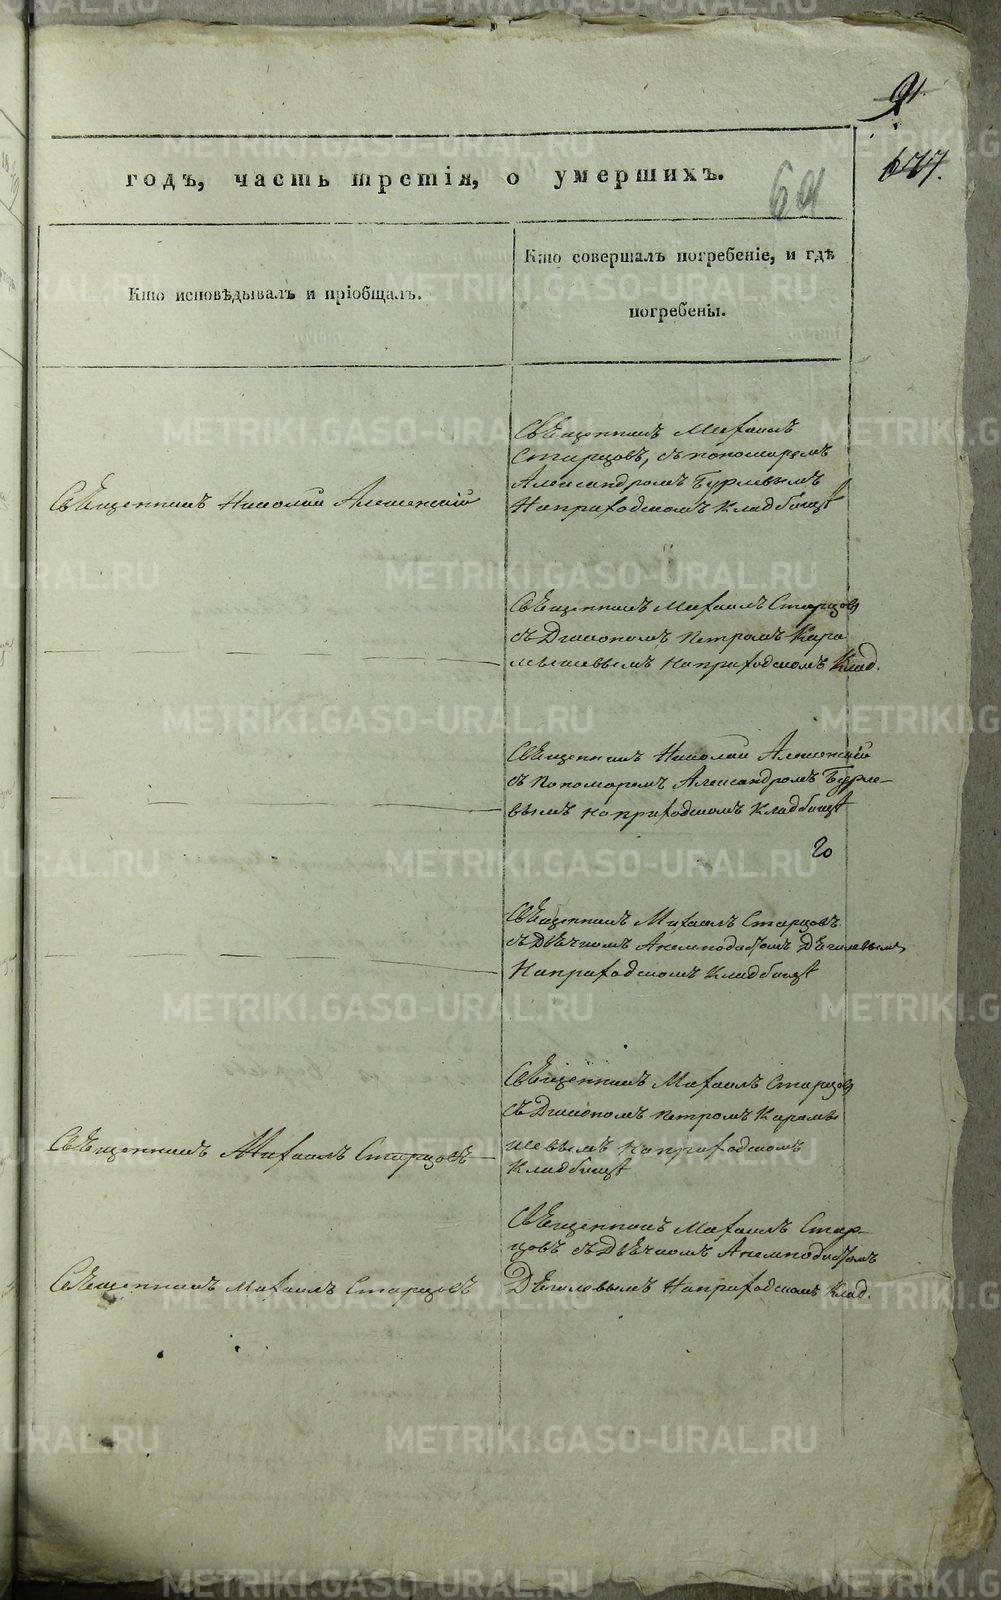 91.
677.
69
годъ, часть третія, о умершихъ.
Кто исповѣдывалъ и пріобщалъ.
Кто совершалъ погребеніе, и гдѣ
погребены.
Священникъ Николай
Священникъ Михаилъ
Старцовъ, съ пономаремъ
Александромъ Бурлевымъ
На приходскомъ Кладбищѣ
Священникъ Михаилъ Старцовъ
съ Діакономъ Петромъ Кара
мышевымъ на приходскомъ Клад.
Священникъ Николай
съ пономаремъ Александромъ Бурле-
вымъ на приходскомъ Кладбищѣ
20
Священникъ Михаилъ Старцовъ
съ Дьячкомъ Анемподистомъ Дѣгилевымъ
На приходскомъ Кладбищѣ
Священникъ Михаилъ Старцовъ
Священникъ Михаилъ Старцовъ
съ Діакономъ Петромъ Карамы
шевымъ на приходскомъ
Кладбищѣ
Священникъ Михаилъ Старцовъ
Священникъ Михаилъ Стар-
цовъ съ Дьячкомъ Анемподистомъ
Дѣгилевымъ На приходскомъ Клад.
METRIKI.GASO-URAL.RU